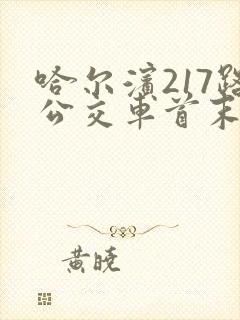 哈尔濱217路
公交車首末
黄晓